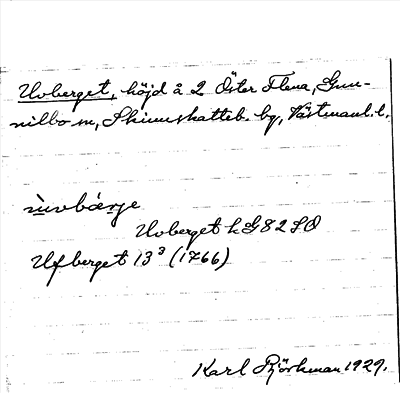 Uvberget, höjd å 2 Öster Flena, Gun-
nilbo sn, Skinnskatteb. bg, Västmanl. l.
Uvberget h G 82 SO
Ufberget 13³ (1766)
Karl Björkman 1929.